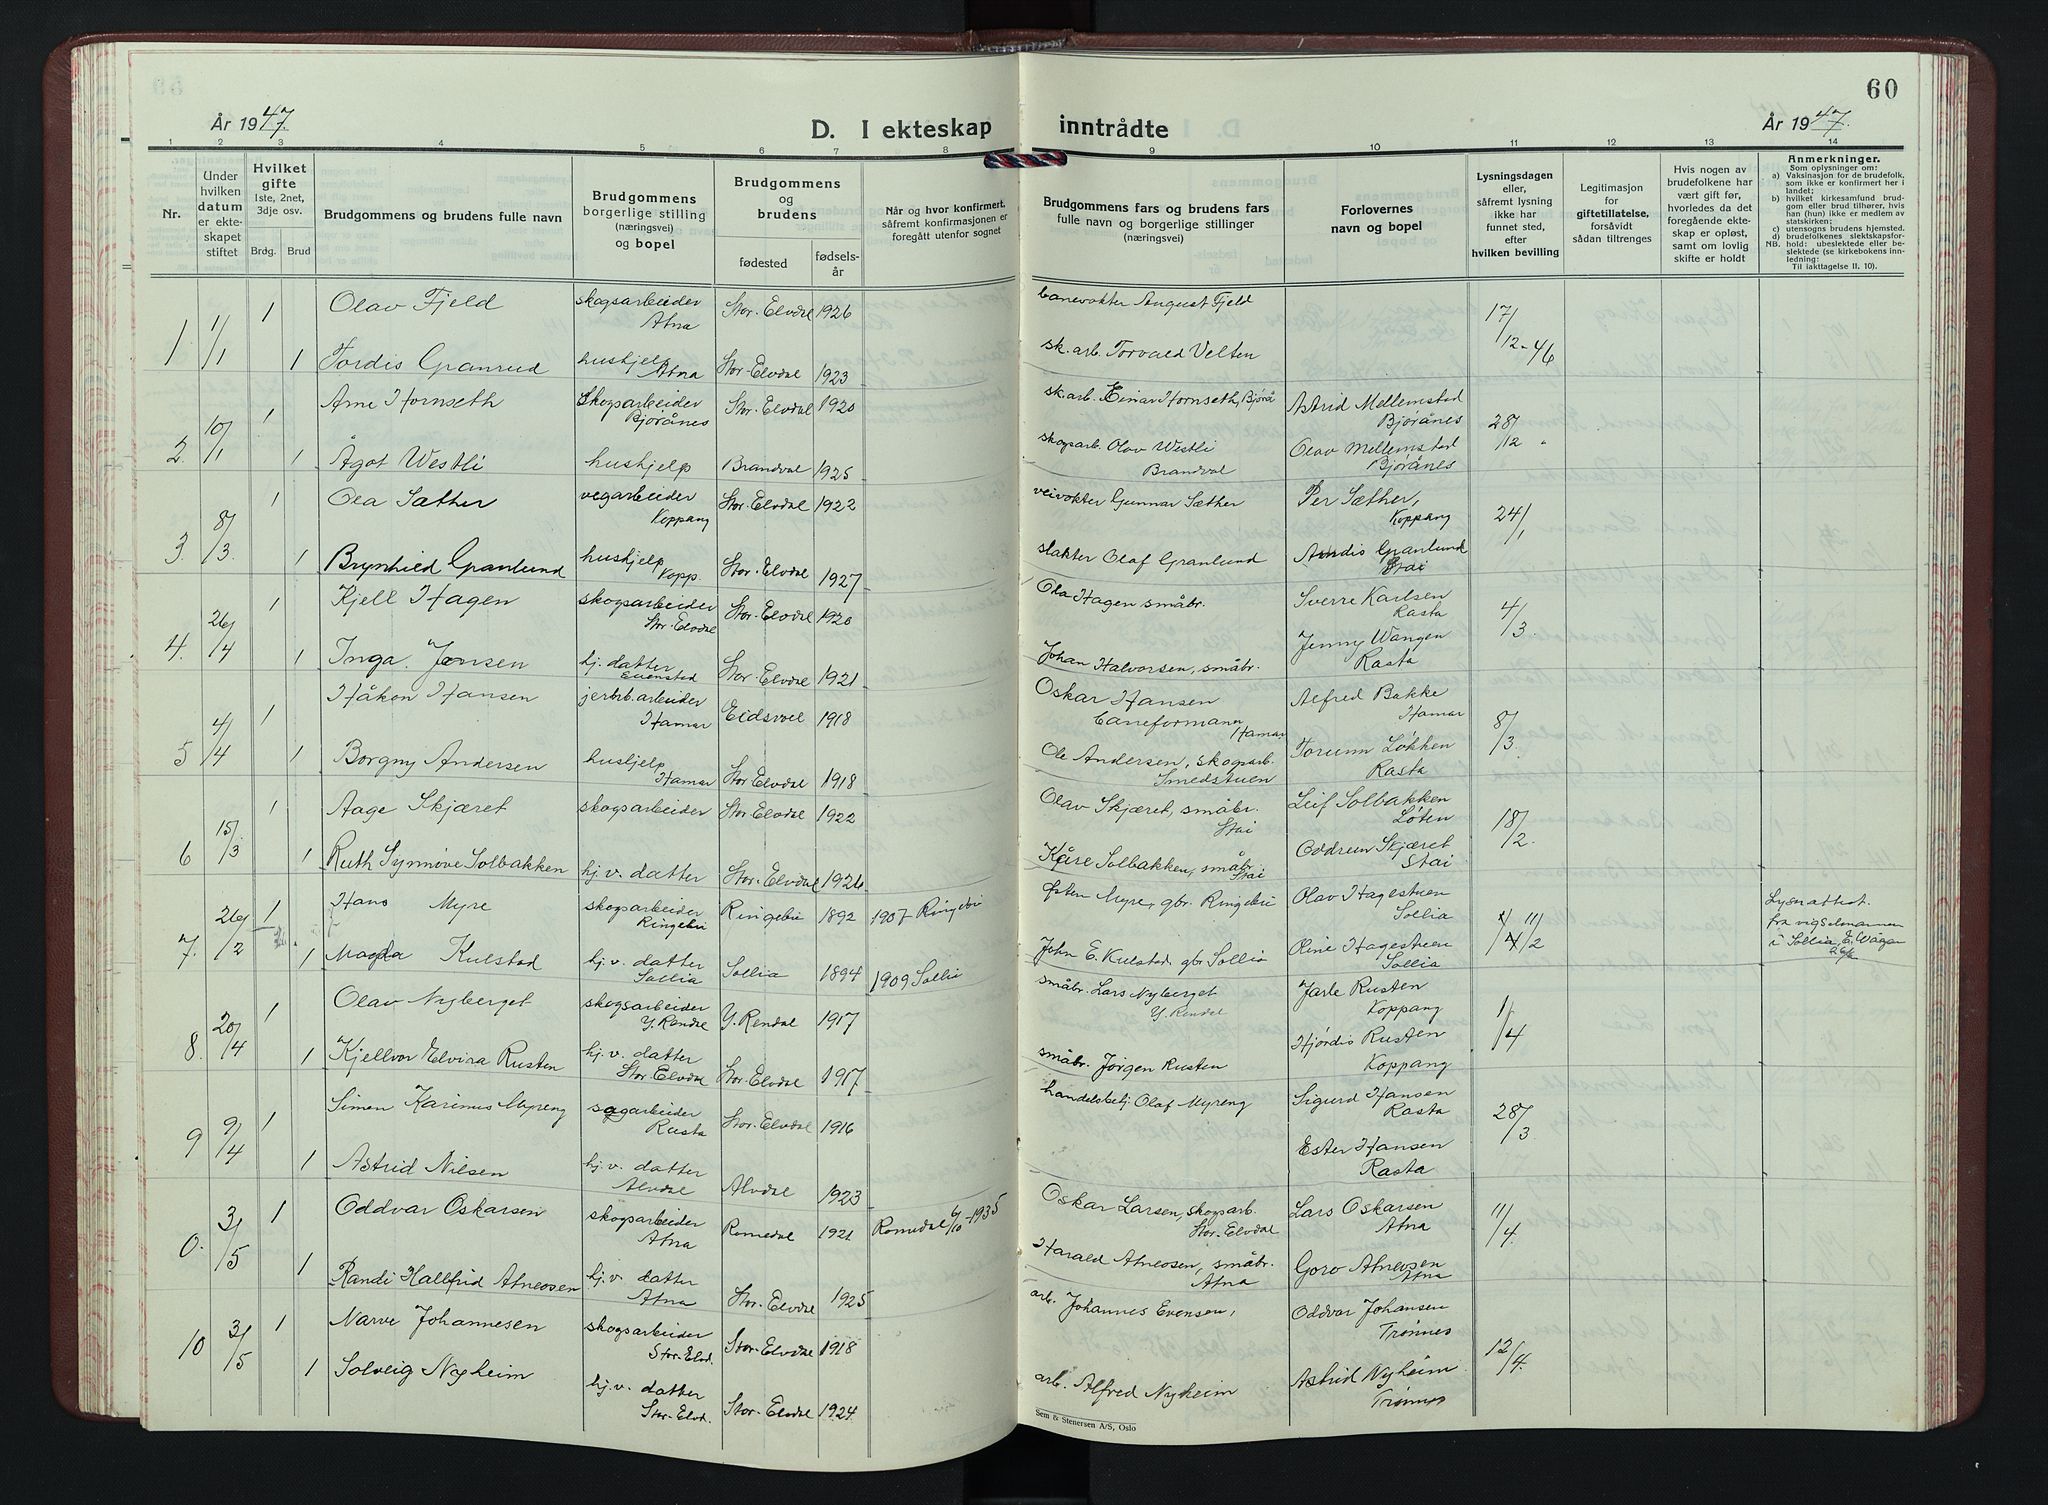 60
År 1947.
D. I ekteskap inntrådte
År 1947.
1 2 3 4 5 6 7 8 9 10 11 12 13 14
Nr.
Under hvilken datum er ekteskapet stiftet
Hvilket gifte
1ste, 2net, 3dje osv.
Brdg. Brud
Brudgommens og brudens fulle navn
Brudgommens borgerlige stilling (næringsvei) og bopel
Brudgommens og brudens
fødested
fødselsår
Når og hvor konfirmert, såfremt konfirmasjonen er foregått utenfor sognet
Brudgommens fars og brudens fars fulle navn og borgerlige stillinger (næringsvei)
Forlovernes navn og bopel
Lysningsdagen eller, såfremt lysning ikke har funnet sted, efter hvilken bevilling
Legitimasjon for giftetillatelse, forsåvidt sådan tiltrenges
Hvis nogen av brudefolkene har vært gift før, hvorledes da det foregående ekteskap er opløst, samt om lovlig skifte er holdt
Anmerkninger.
Som oplysninger om:
a) Vaksinasjon for de brudefolk, som ikke er konfirmert her i landet;
b) hvilket kirkesamfund brudgom eller brud tilhører, hvis han (hun) ikke er medlem av statskirken;
c) utensogns brudens hjemsted.
d) brudefolkenes slektskapsforhold: ubeslektede eller beslektede (se kirkebokens innledning:
NB.
Til iakttagelse II, 10).
1 1/1 1 Olav Fjeld skogsarbeider Atna Stor-Elvdal 1926 banevokter August Fjeld 17/12-46
1 Tordis Granrud hushjelp Atna Stor-Elvdal 1923 sk. arb. Torvald Velten
2. 10/1 1 Arne Hornseth Skogsarbeider Bjørånes Stor-Elvdal 1920 sk. arb. Einar Hornseth, Bjørå Astrid Mellemstad Bjørånes 28/12 "
1 Ågot Westli hushjelp Brandval 1925 skogsarb. Olav Westli Brandval Olav Mellemstad Bjørånes
3 8/3 1 Ola Sæther vegarbeider Koppang Stor-Elvdal 1922 veivokter Gunnar Sæther Per Sæther, Koppang 24/1
1 Brynhild Granlund hushjelp Kopp. Stor-Elvdal 1927 slakter Olaf Granlund Arndis Granlund Stai
4. 26/4 1 Kjell Hagen skogsarbeider Stor-Elvdal Stor-Elvdal 1920 Ola Hagen småbr. Sverre Karlsen Rasta 4/3.
1 Inga Jensen hj. datter Evenstad Stor-Elvdal 1921 Johan Halvorsen, småbr. Jenny Wangen Rasta
5 4/4 1 Håkon Hansen jernb. arbeider Hamar Eidsvoll 1918 Oskar Hansen baneformann Hamar Alfred Bakke Hamar 8/3.
1 Borgny Andersen hushjelp Hamar Stor-Elvdal 1918 Ole Andersen, skogsarb. Smedstuen Torunn Løkken Rasta
6 15/3. 1 Aage Skjæret skogsarbeider Stor-Elvdal 1922 Olav Skjæret, småbr. Stai Leif Solbakken Løten 18/2.
1 Ruth Synnøve Solbakken hj. v. datter Stor-Elvdal 1926 Kåre Solbakken, småbr. Stai Oddrun Skjæret Stai
7. 26/2 1 Hans Myre skogsarbeider Ringebu Ringebu 1892 1907 Ringebu Østen Myre, gbr. Ringebu Olav Hagestuen Sollia 11/2 Lysn. attest. fra vigselmannen i Sollia, E. Wågen
1 Magda Kulstad hj. v. datter Sollia Sollia 1894 1909 Sollia John E. Kulstad gbr Sollia Oline Hagestuen Sollia
8. 20/4 1 Olav Nyberget skogsarbeider Y. Rendal Y. Rendal 1917 småbr. Lars Nyberget Y. Rendal Jarle Rusten Koppang 1/4
1 Kjellvor Elvira Rusten hj. v. datter Stor-Elvdal Stor-Elvdal 1917 småbr. Jørgen Rusten Hjørdis Rusten Koppang
9 9/4 1 Simen Karinus Myreng sagarbeider Rasta Stor-Elvdal 1916 handelsbetj. Olaf Myreng Sigurd Hansen Rasta 28/3.
1 Astrid Nilsen hj. v. datter Alvdal Alvdal 1923 Ester Hansen Rasta
0. 3/5 1 Oddvar Oskarsen skogsarbeider Atna Romedal 1921 Romedal 6/10-1935 Oskar Larsen, skogsarb. Stor-Elvdal Lars Oskarsen Atna 11/4.
1 Randi Hallfrid Atneosen hj. v. datter Atna Stor-Elvdal 1925 Harald Atneosen, småbr. Atna Goro Atneosen Atna
10 3/5 1 Narve Johannesen skogsarbeider Stor-Elvd. Stor-Elvdal 1918 arb. Johannes Evensen, Oddvar Johansen Trønnes 12/4.
1 Solveig Nyheim hj. v. datter Stor-Elvd. Stor-Elvdal 1924. arb. Alfred Nyheim Astrid Nyheim Trønnes
Sem & Stenersen A/S, Oslo